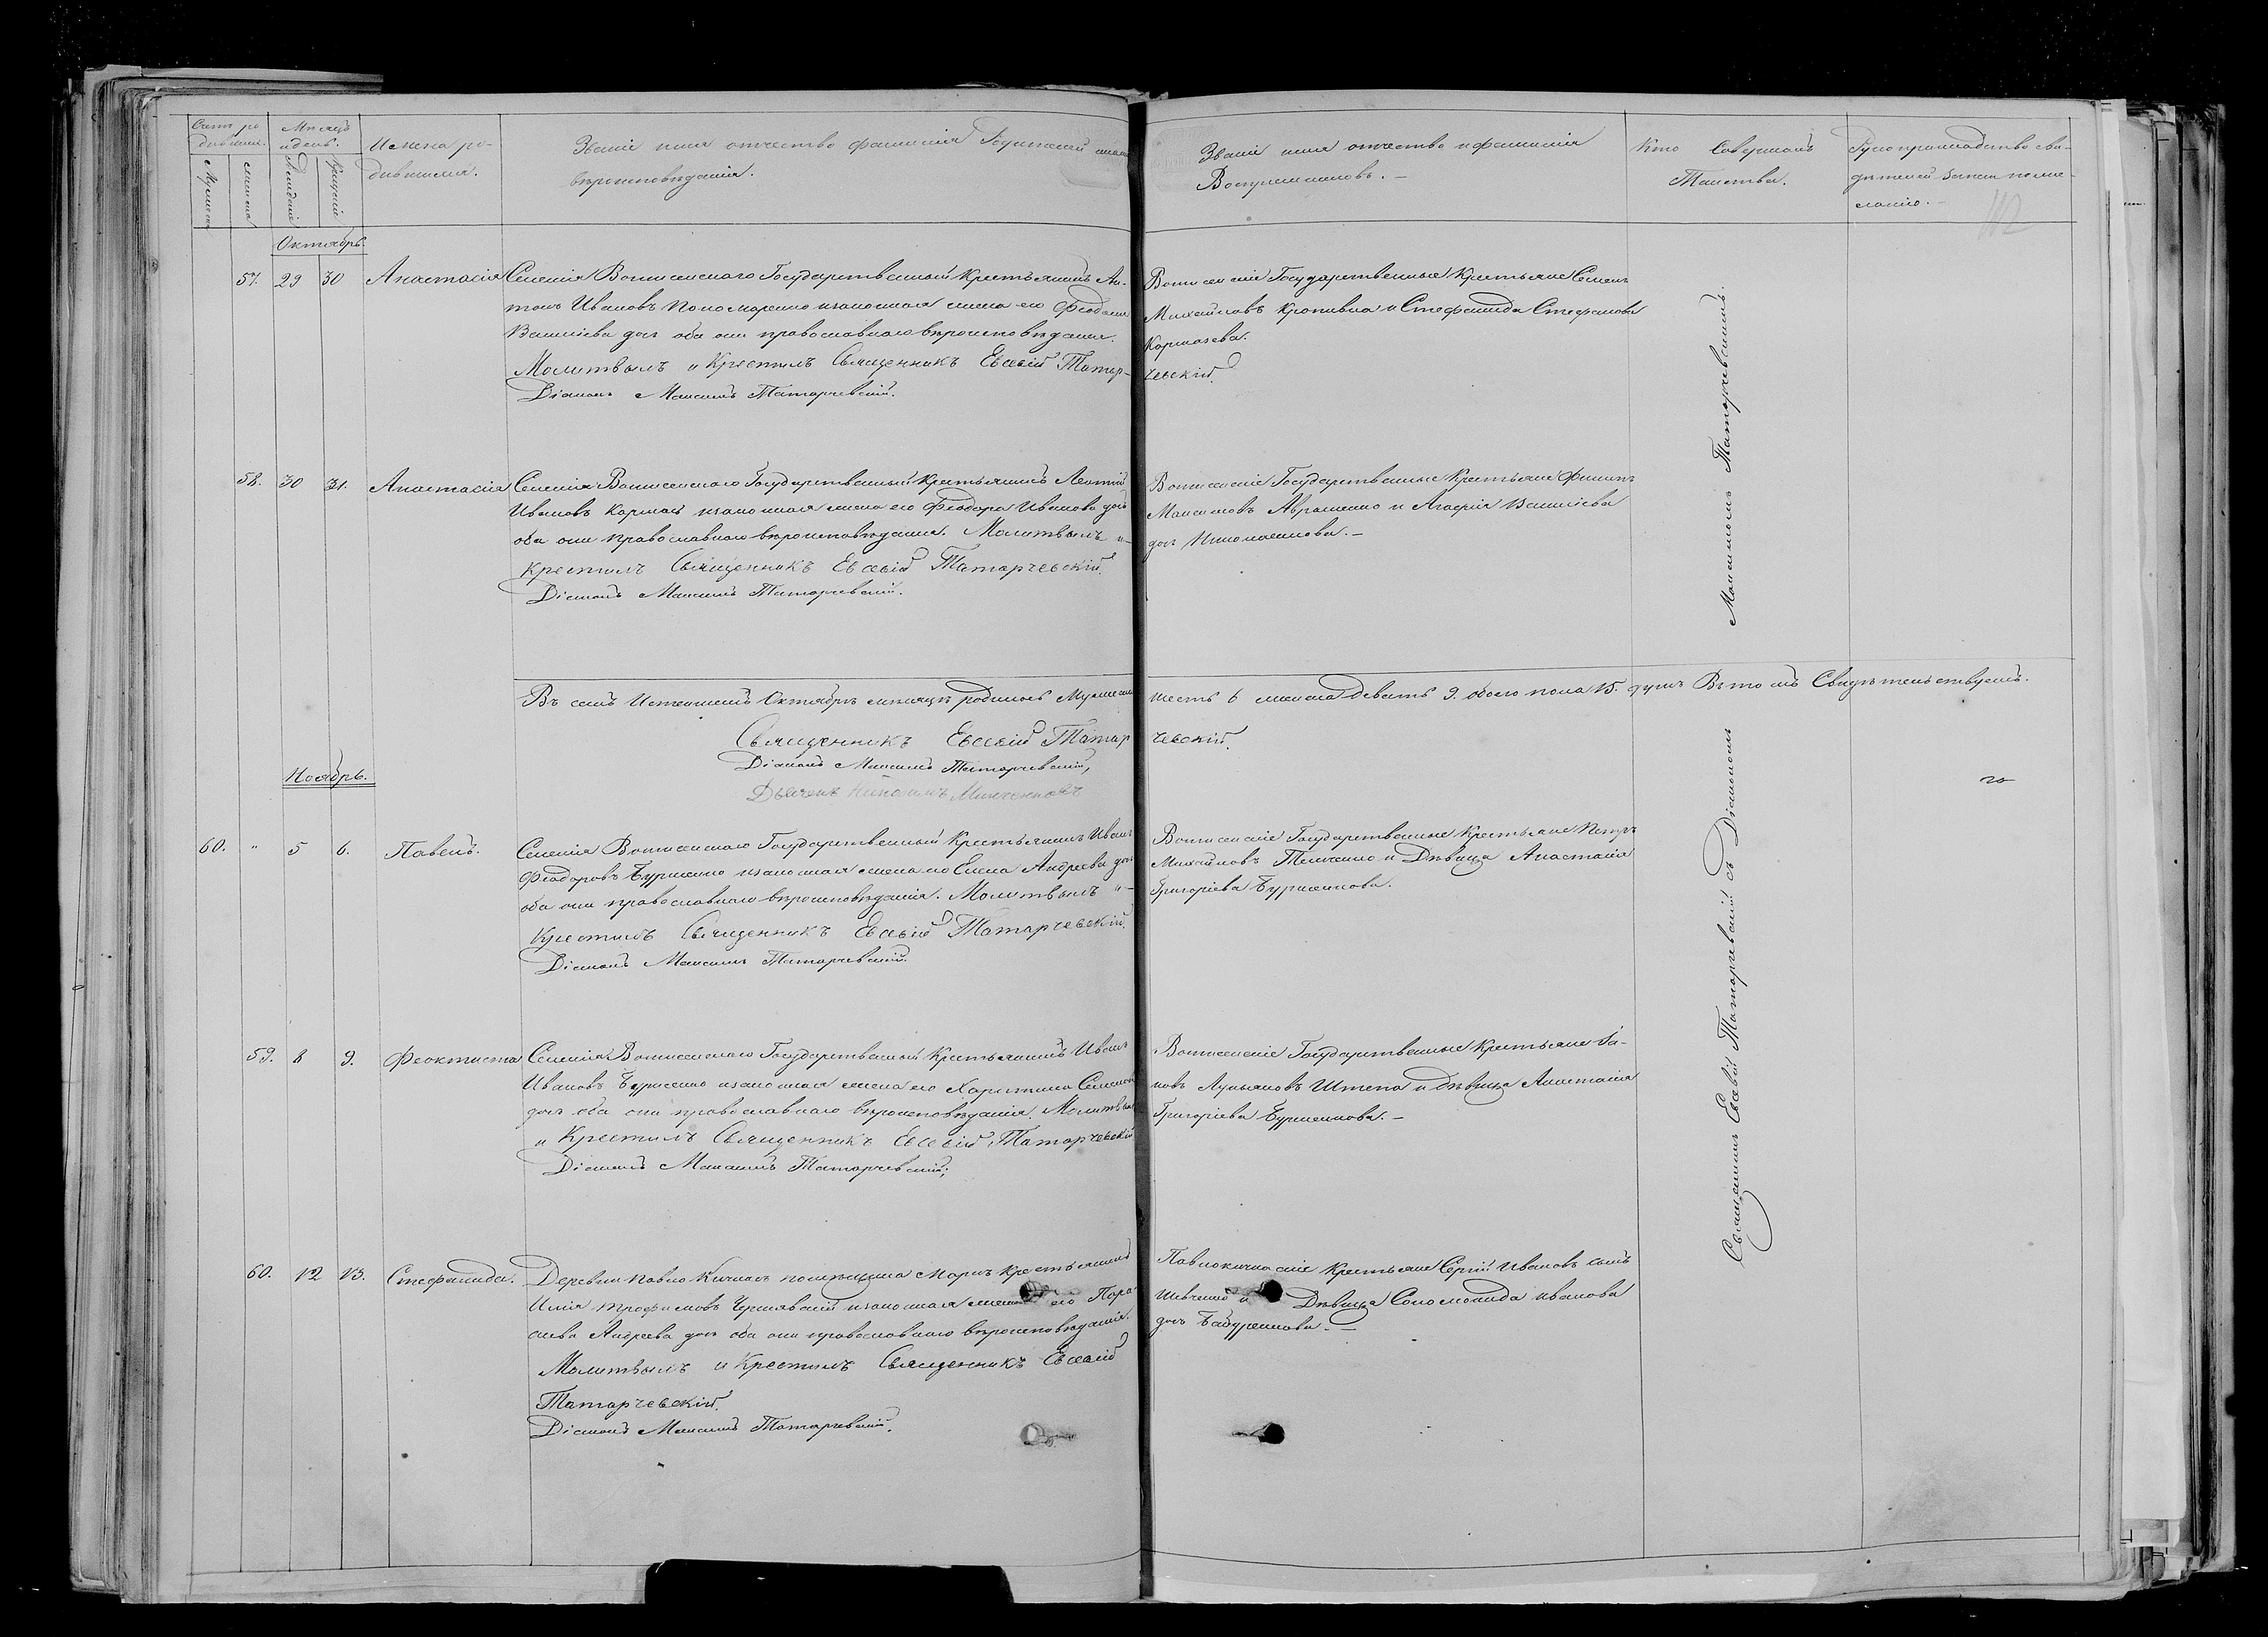 Счетъ ро-
дившихся.
Мѣсяцъ
и день.
Имена ро-
дившихся.
Званіе имя отчество фамилія Родителей
вѣроисповѣданія.
Званіе имя отчество и фамилія
Воспріемниковъ. —
Кто Совершалъ
Таинства.
Рукоприкладство сви-
дѣтелей записи по же-
ланію. —
Мужеска
женска
Рожденіе
Крещеніе
112
Октябрь.
57. 29 30 Анастасія
Селенія Вознесенского Государственный Крестьянинъ Ан-
тонъ Ивановъ Пономаренко изаконная жена его Феодосія
Василіева дочъ оба они православного вѣроисповѣданія.
Молитвилъ и Крестилъ Священникъ Евсевій Татар-
чевскій.
Діаконъ Максимъ Татарчевскій.
Вознесенскіе Государственные Крестьяне Семенъ
Михайловъ Кропивка и Стефанида Стефанова
Кормазева.
58. 30 31. Анастасія
Селенія Вознесенского Государственный Крестьянинъ Леонтій
Ивановъ Кормазъ изаконная жена его Феодора Иванова дочъ
оба они православного вѣроисповѣданія. Молитвилъ и —
Крестилъ Священникъ Евсевій Татарчевскій.
Діаконъ Максимъ Татарчевскій.
Вознесенскіе Государственные Крестьяне Филипъ
Максимовъ Авраменко и Агафія Василіева
дочъ Николаенкова. —
Въ семъ Истекшемъ Октябрѣ мѣсяцѣ родилось Мужеска
шесть 6 женска девять 9. обоего пола 15. душъ Въ томъ Свидѣтельствуемъ.
Священникъ Евсевій Татар
чевскій.
Діаконъ Максимъ Татарчевскій,
Дьячекъ
Ноябрь.
60. " 5 6. Павелъ.
Селенія Вознесенского Государственный Крестьянинъ Иванъ
Феодоровъ Бурженко изаконная жена его Елена Андреева дочъ
оба они православного вѣроисповѣданія. Молитвилъ и —
Крестилъ Священникъ Евсевій Татарчевскій.
Діаконъ Максимъ Татарчевскій.
Вознесенскіе Государственные Крестьяне Петръ
Михайловъ и Дѣвица Анастасія
Григоріева Бурженкова.
59. 8 9. Феоктиста
Селенія Вознесенского Государственный Крестьянинъ Иванъ
Ивановъ Бурженко изаконная жена его Харитина Семенова
дочъ оба они православного вѣроисповѣданія. Молитвилъ
и Крестилъ Священникъ Евсевій Татарчевскій
Діаконъ Максимъ Татарчевскій;
Вознесенскіе Государственные Крестьяне Іа-
ковъ Лукьяновъ Штепа и дѣвица Анастасія
Григоріева Бурженкова. —
60. 12 13. Стефанида.
Деревни Павло Кичкаса помѣщика Маркъ Крестьянинъ
Илія Трофимовъ Чернявскій изаконная жена его Пара-
скева Андреева дочъ оба они православного вѣроисповѣданія.
Молитвилъ и Крестилъ Священникъ Евсевій
Татарчевскій.
Діаконъ Максимъ Татарчевскій.
Павлокичкаскіе Крестьяне Сергій Ивановъ сынъ
Шевченко и Дѣвица Соломонида Иванова
дочъ Бабуренкова. —
Священникъ Евсевій Татарчевскій съ Діакономъ Максимомъ Татарчевскимъ.